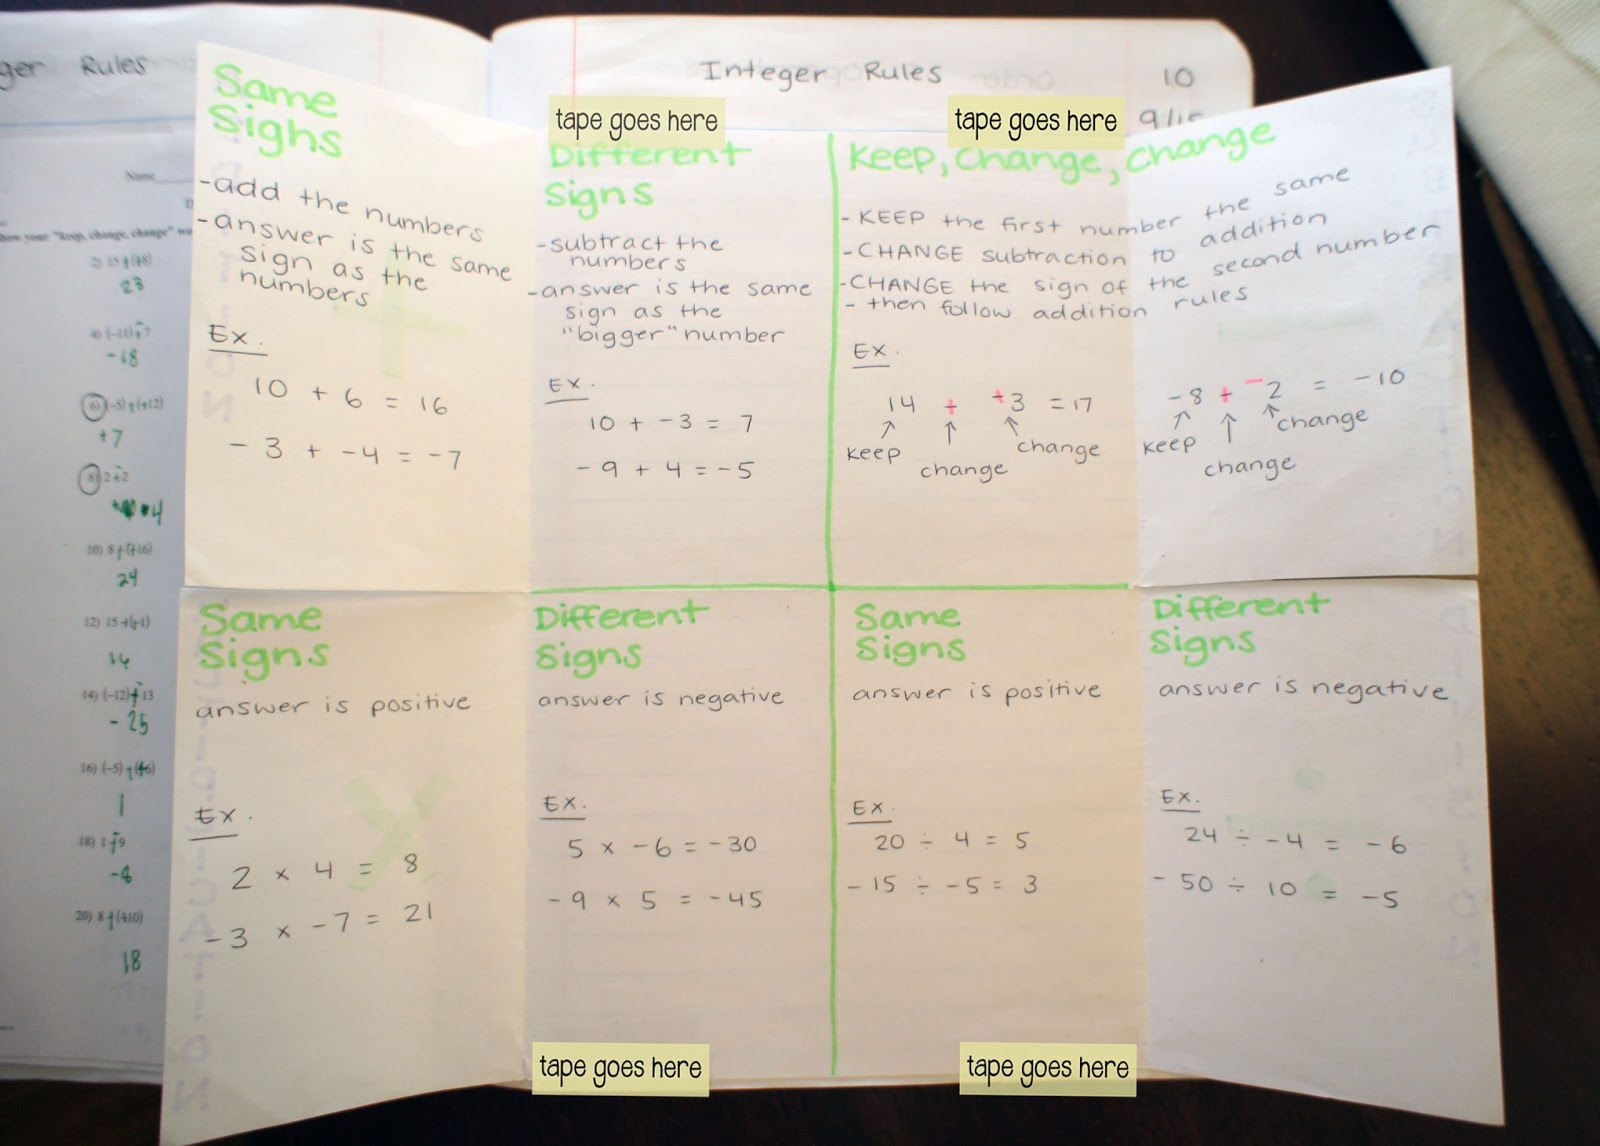 ger Rules
Name
how your "keep, change, change" wo
2) 15 + (+8)
23
-18
+7
10) 8 + (+16)
24
14
14) (-12) + -13
-25
16) (-5) + (+6)
1
-8
20) 8 + (+10)
18
Integer Rules 10
tape goes here
tape goes here
Same
Signs
-add the numbers
-answer is the same
sign as the
numbers
Ex.
10 + 6 = 16
-3 + -4 = -7
Different
Signs
-subtract the
numbers
-answer is the same
sign as the
"bigger" number
Ex.
10 + -3 = 7
-9 + 4 = -5
Keep, Change, Change
- KEEP the first number the same
- CHANGE subtraction to addition
- CHANGE the sign of the second number
- then follow addition rules
Ex.
14 + +3 = 17
keep change change
-8 + -2 = -10
keep change change
Same
Signs
answer is positive
Ex.
2 x 4 = 8
-3 x -7 = 21
Different
Signs
answer is negative
Ex.
5 x -6 = -30
-9 x 5 = -45
Same
Signs
answer is positive
Ex.
20 ÷ 4 = 5
-15 ÷ -5 = 3
Different
Signs
answer is negative
Ex.
24 ÷ -4 = -6
-50 ÷ 10 = -5
tape goes here
tape goes here